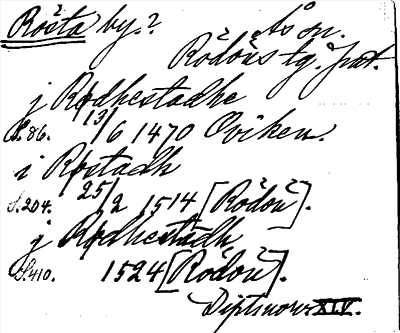 Rösta by.? Ås sn.
Rödöns tg. Jmt.
j Rødhestadhe
S. 86. 13/6 1470 Oviken.
i Røstadh
S. 204. 25/2 1514 [Rödön].
j Rødhestadh
S. 410. 1524 [Rödön].
Diplnorv XIV.